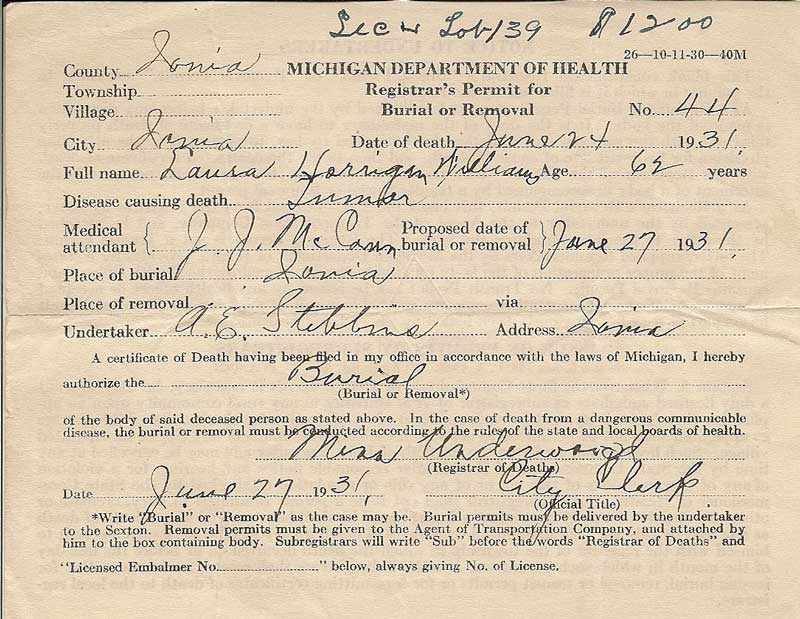 Sec Lot 139 $12.00
26—10-11-30—40M
County Ionia MICHIGAN DEPARTMENT OF HEALTH
Township Registrar's Permit for
Village Burial or Removal No. 44
City Ionia Date of death June 24 1931
Full name Laura Horrigan Williams Age 62 years
Disease causing death Tumor
Medical attendant { J. J. McCann Proposed date of burial or removal } June 27 1931
Place of burial Ionia
Place of removal via
Undertaker A. E. Stebbins Address Ionia
A certificate of Death having been filed in my office in accordance with the laws of Michigan, I hereby
authorize the Burial
(Burial or Removal*)
of the body of said deceased person as stated above. In the case of death from a dangerous communicable
disease, the burial or removal must be conducted according to the rules of the state and local boards of health.
Mina Underwood
(Registrar of Deaths)
Date June 27 1931, City Clerk
(Official Title)
*Write "Burial" or "Removal" as the case may be. Burial permits must be delivered by the undertaker
to the Sexton. Removal permits must be given to the Agent of Transportation Company, and attached by
him to the box containing body. Subregistrars will write "Sub" before the words "Registrar of Deaths" and
"Licensed Embalmer No." below, always giving No. of License.